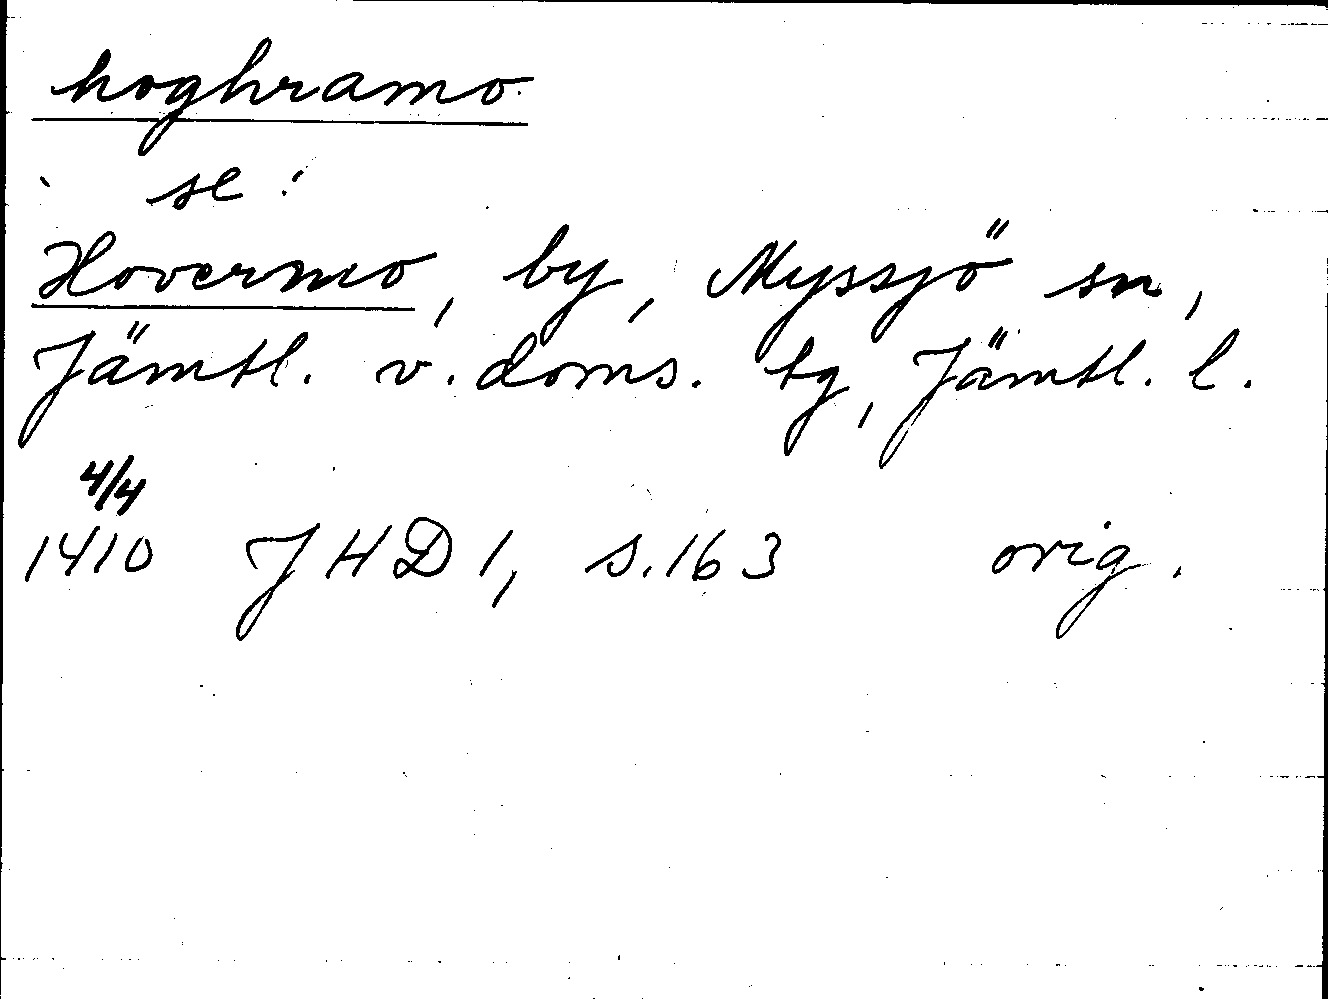 hoghramo
se:
Hovermo, by, Myssjö sn,
Jämtl. v. doms. tg, Jämtl. l.
4/4
1410 JHD 1, s. 163 orig.